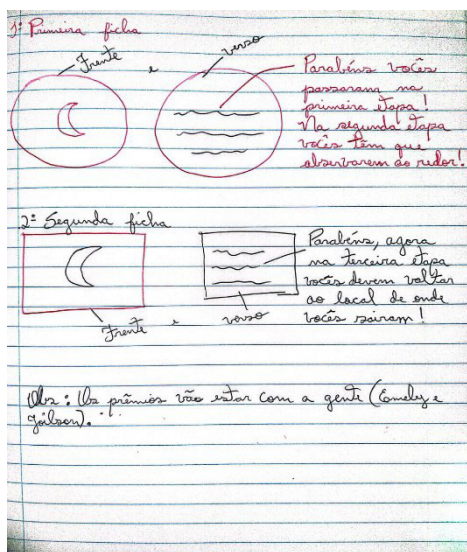 1ª Primeira ficha
Frente e verso
Parabéns vocês
passaram na
primeira etapa!
Na segunda etapa
vocês têm que
observarem ao redor!
2ª Segunda ficha
Parabéns, agora
na terceira etapa
vocês devem voltar
ao local de onde
vocês sairam!
Frente e verso
Obs: Os prêmios vão estar com a gente (Emely e
Joilson).